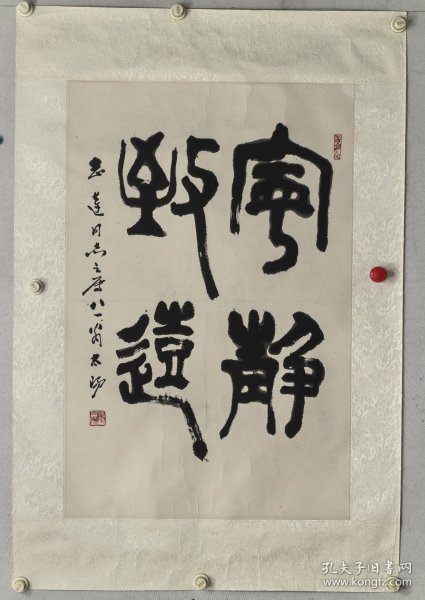 寧靜
致遠
志達同志之屬八一翁太陽
孔夫子旧书网
www.kongfz.com